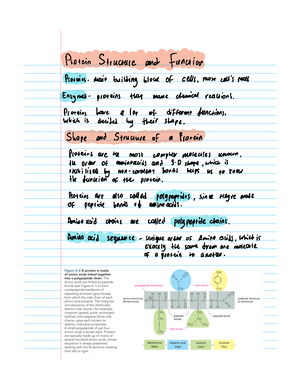 Protein Structure and Function
Proteins - main building block of cells, most cell's mass
Enzymes - proteins that make chemical reactions.
Proteins have a lot of different functions,
which is decided by their shape.
Shape and Structure of a Protein
Proteins are the most complex molecules known.
The order of aminoacids and 3-D shape, which is
stabilized by non-covalent bonds helps us to know
the function of the protein.
Proteins are also called polypeptides, since they're made
of peptide bonds of aminoacids.
Amino acid chains are called polypeptide chains.
Amino acid sequence - unique order of Amino acids, which is
exactly the same from one molecule
of a protein to another.
Figure 4-2 A protein is made
of amino acids linked together
into a polypeptide chain. The
amino acids are linked by peptide
bonds (see Figure 4-1) to form
a polypeptide backbone of
repeating structure (gray boxes),
from which the side chain of each
amino acid projects. The character
and sequence of the chemically
distinct side chains—for example,
nonpolar (green), polar uncharged
(yellow), and negative (blue) side
chains—give each protein its
distinct, individual properties.
A small polypeptide of just four
amino acids is shown here. Proteins
are typically made up of chains of
several hundred amino acids, whose
sequence is always presented
starting with the N-terminus reading
from left to right.
polypeptide backbone
side chains
amino terminus
(N-terminus)
carboxyl terminus
(C-terminus)
peptide
bond
peptide
bond
peptide bond
side chains
Methionine
(Met)
Aspartic acid
(Asp)
Leucine
(Leu)
Tyrosine
(Tyr)